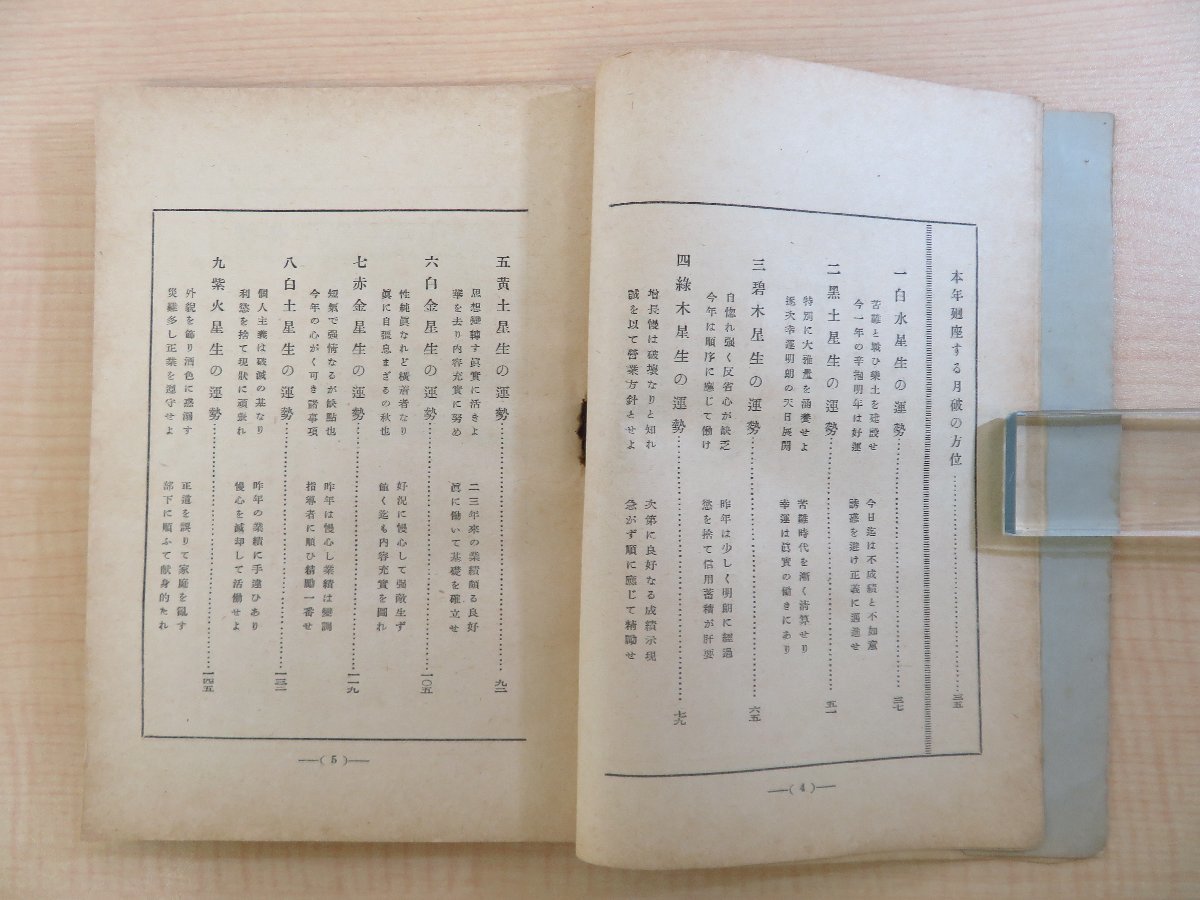 本年廻座する月破の方位…………三五
一白水星生の運勢…………三七
苦難と戰ひ樂土を建設せ
今一年の辛抱明年は好運
今日迄は不成績と不如意
誘惑を避け正義に邁進せ
二黑土星生の運勢…………五一
特別に大雅量を涵養せよ
逐次幸運明朗の天日展開
苦難時代を漸く淸算せり
幸運は眞實の働きにあり
三碧木星生の運勢…………六五
自惚れ强く反省心が缺乏
今年は順序に應じて働け
昨年は少しく明朗に經過
慾を捨て信用蓄積が肝要
四綠木星生の運勢…………七九
增長慢は破壞なりと知れ
誠を以て營業方針とせよ
次第に良好なる成績示現
急がず順に應じて精勵せ
—( 4 )—
五黃土星生の運勢…………九二
思想變轉す眞實に活きよ
華を去り內容充實に努め
二三年來の業績頗る良好
眞に働いて基礎を確立せ
六白金星生の運勢…………一〇五
性純眞なれど橫着者なり
眞に自彊息まざるの秋也
好況に慢心して强敵生ず
飽く迄も內容充實を圖れ
七赤金星生の運勢…………一一九
短氣で强情なるが缺點也
今年の心がく可き諸事項
昨年は慢心し業績は變調
指導者に順ひ精勵一番せ
八白土星生の運勢…………一三二
個人主義は破滅の基なり
利慾を捨て現狀に頑張れ
昨年の業績に手違ひあり
慢心を滅却して活働せよ
九紫火星生の運勢…………一四五
外貌を飾り酒色に惑溺す
災難多し正業を遵守せよ
正道を誤りて家庭を亂す
部下に順ふて献身的たれ
—( 5 )—